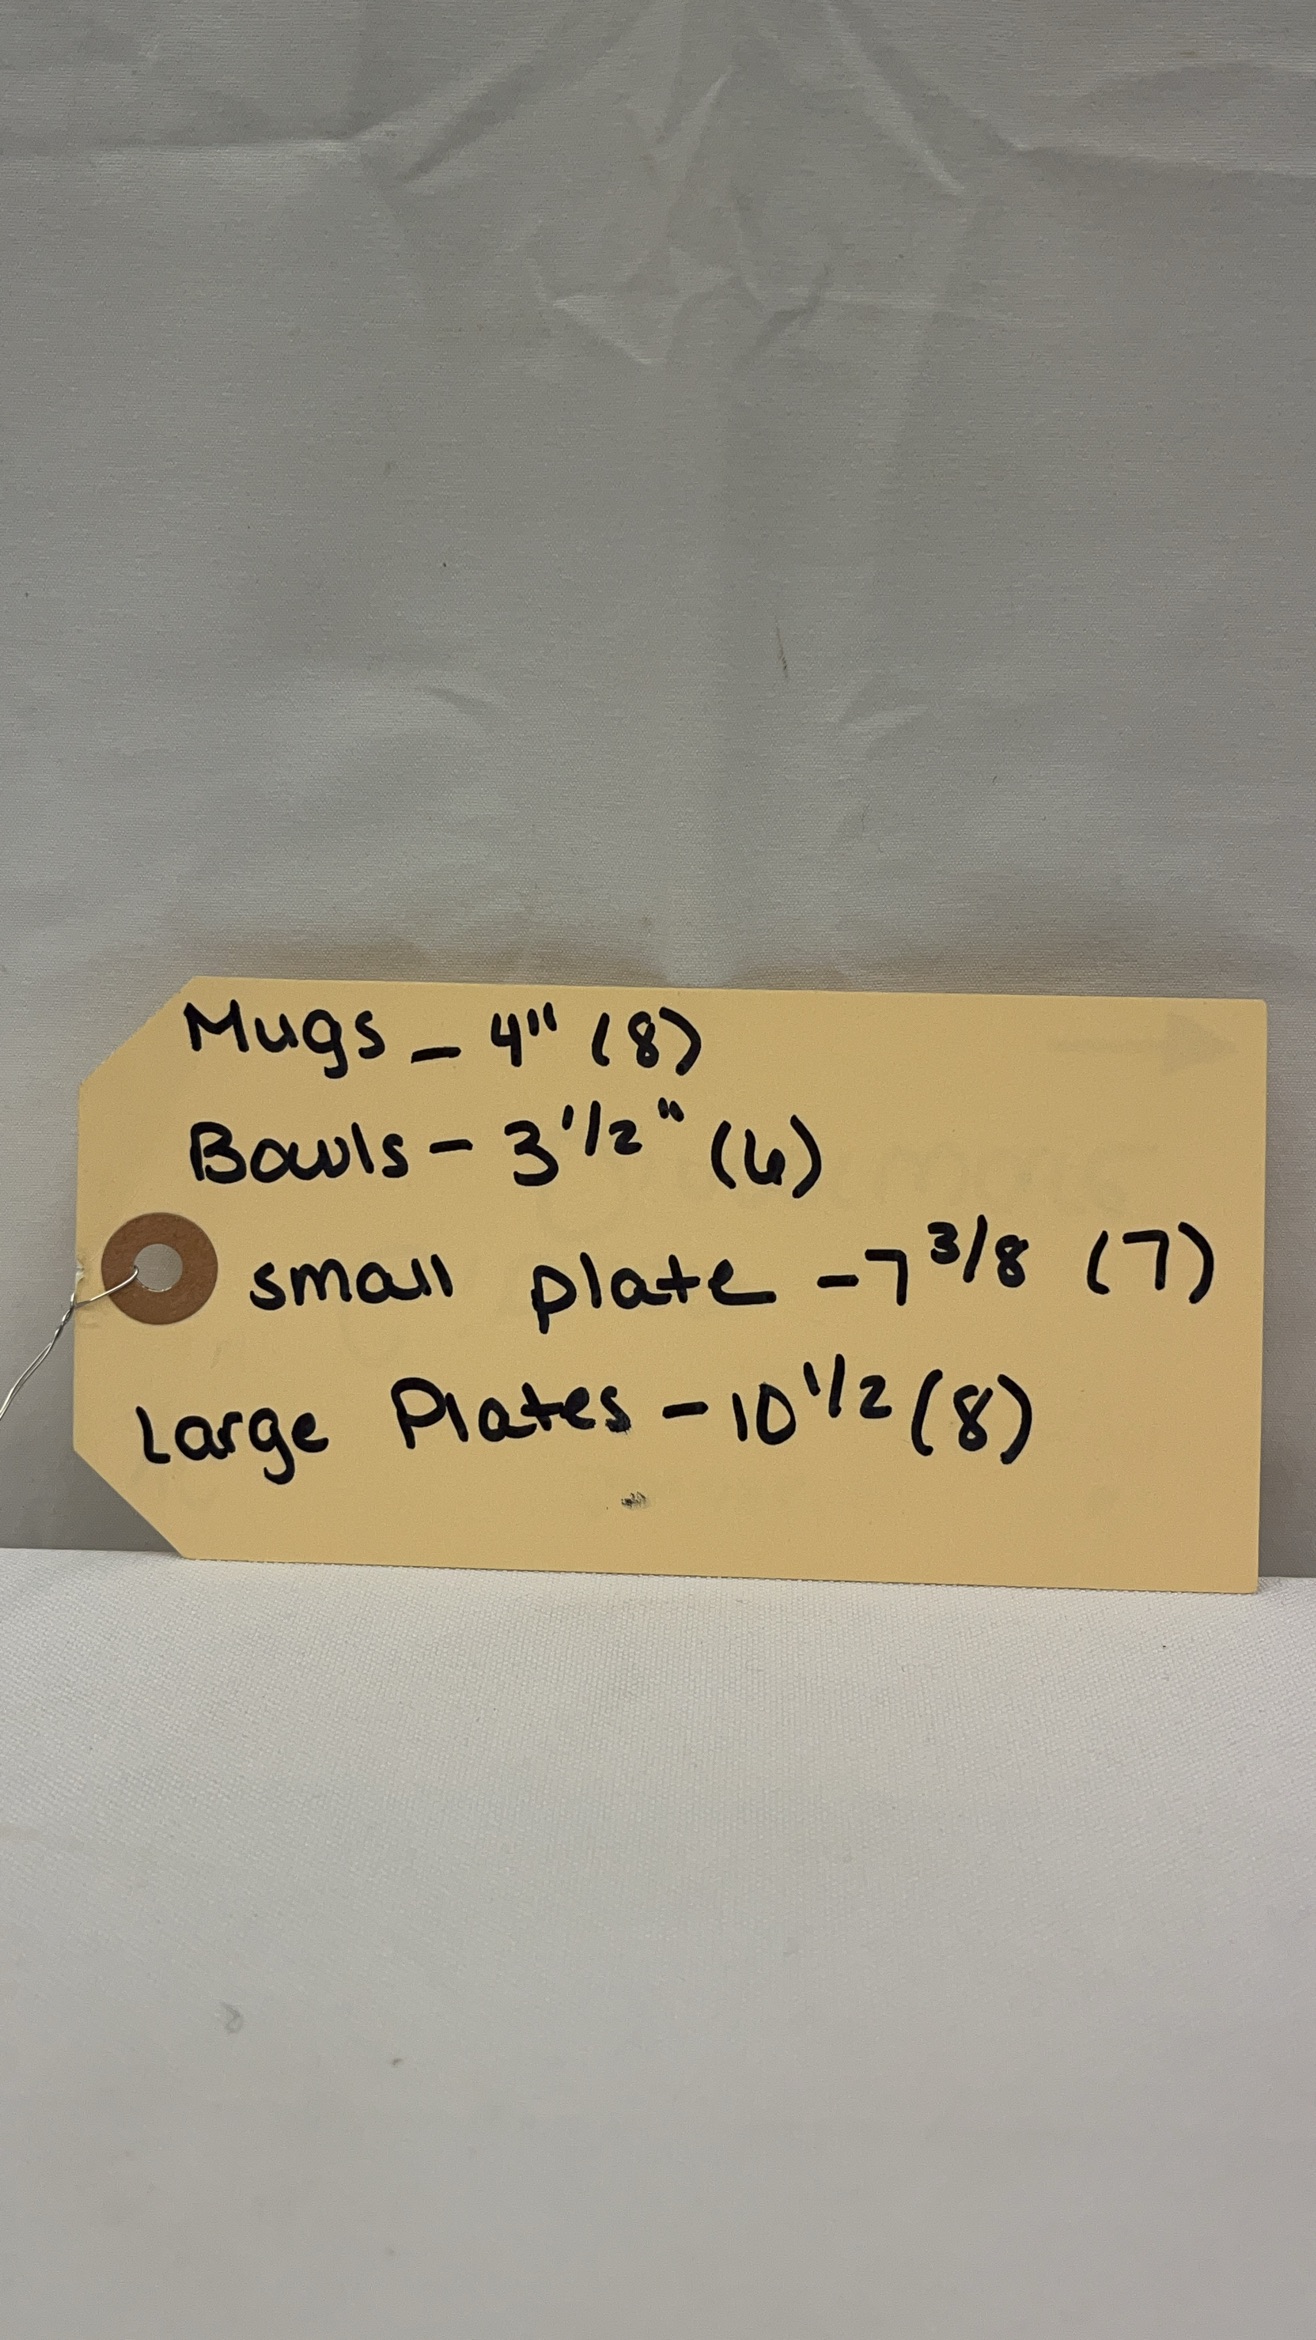 Mugs - 4" (8)
Bowls - 3 1/2" (6)
small plate - 7 3/8 (7)
Large Plates - 10 1/2 (8)